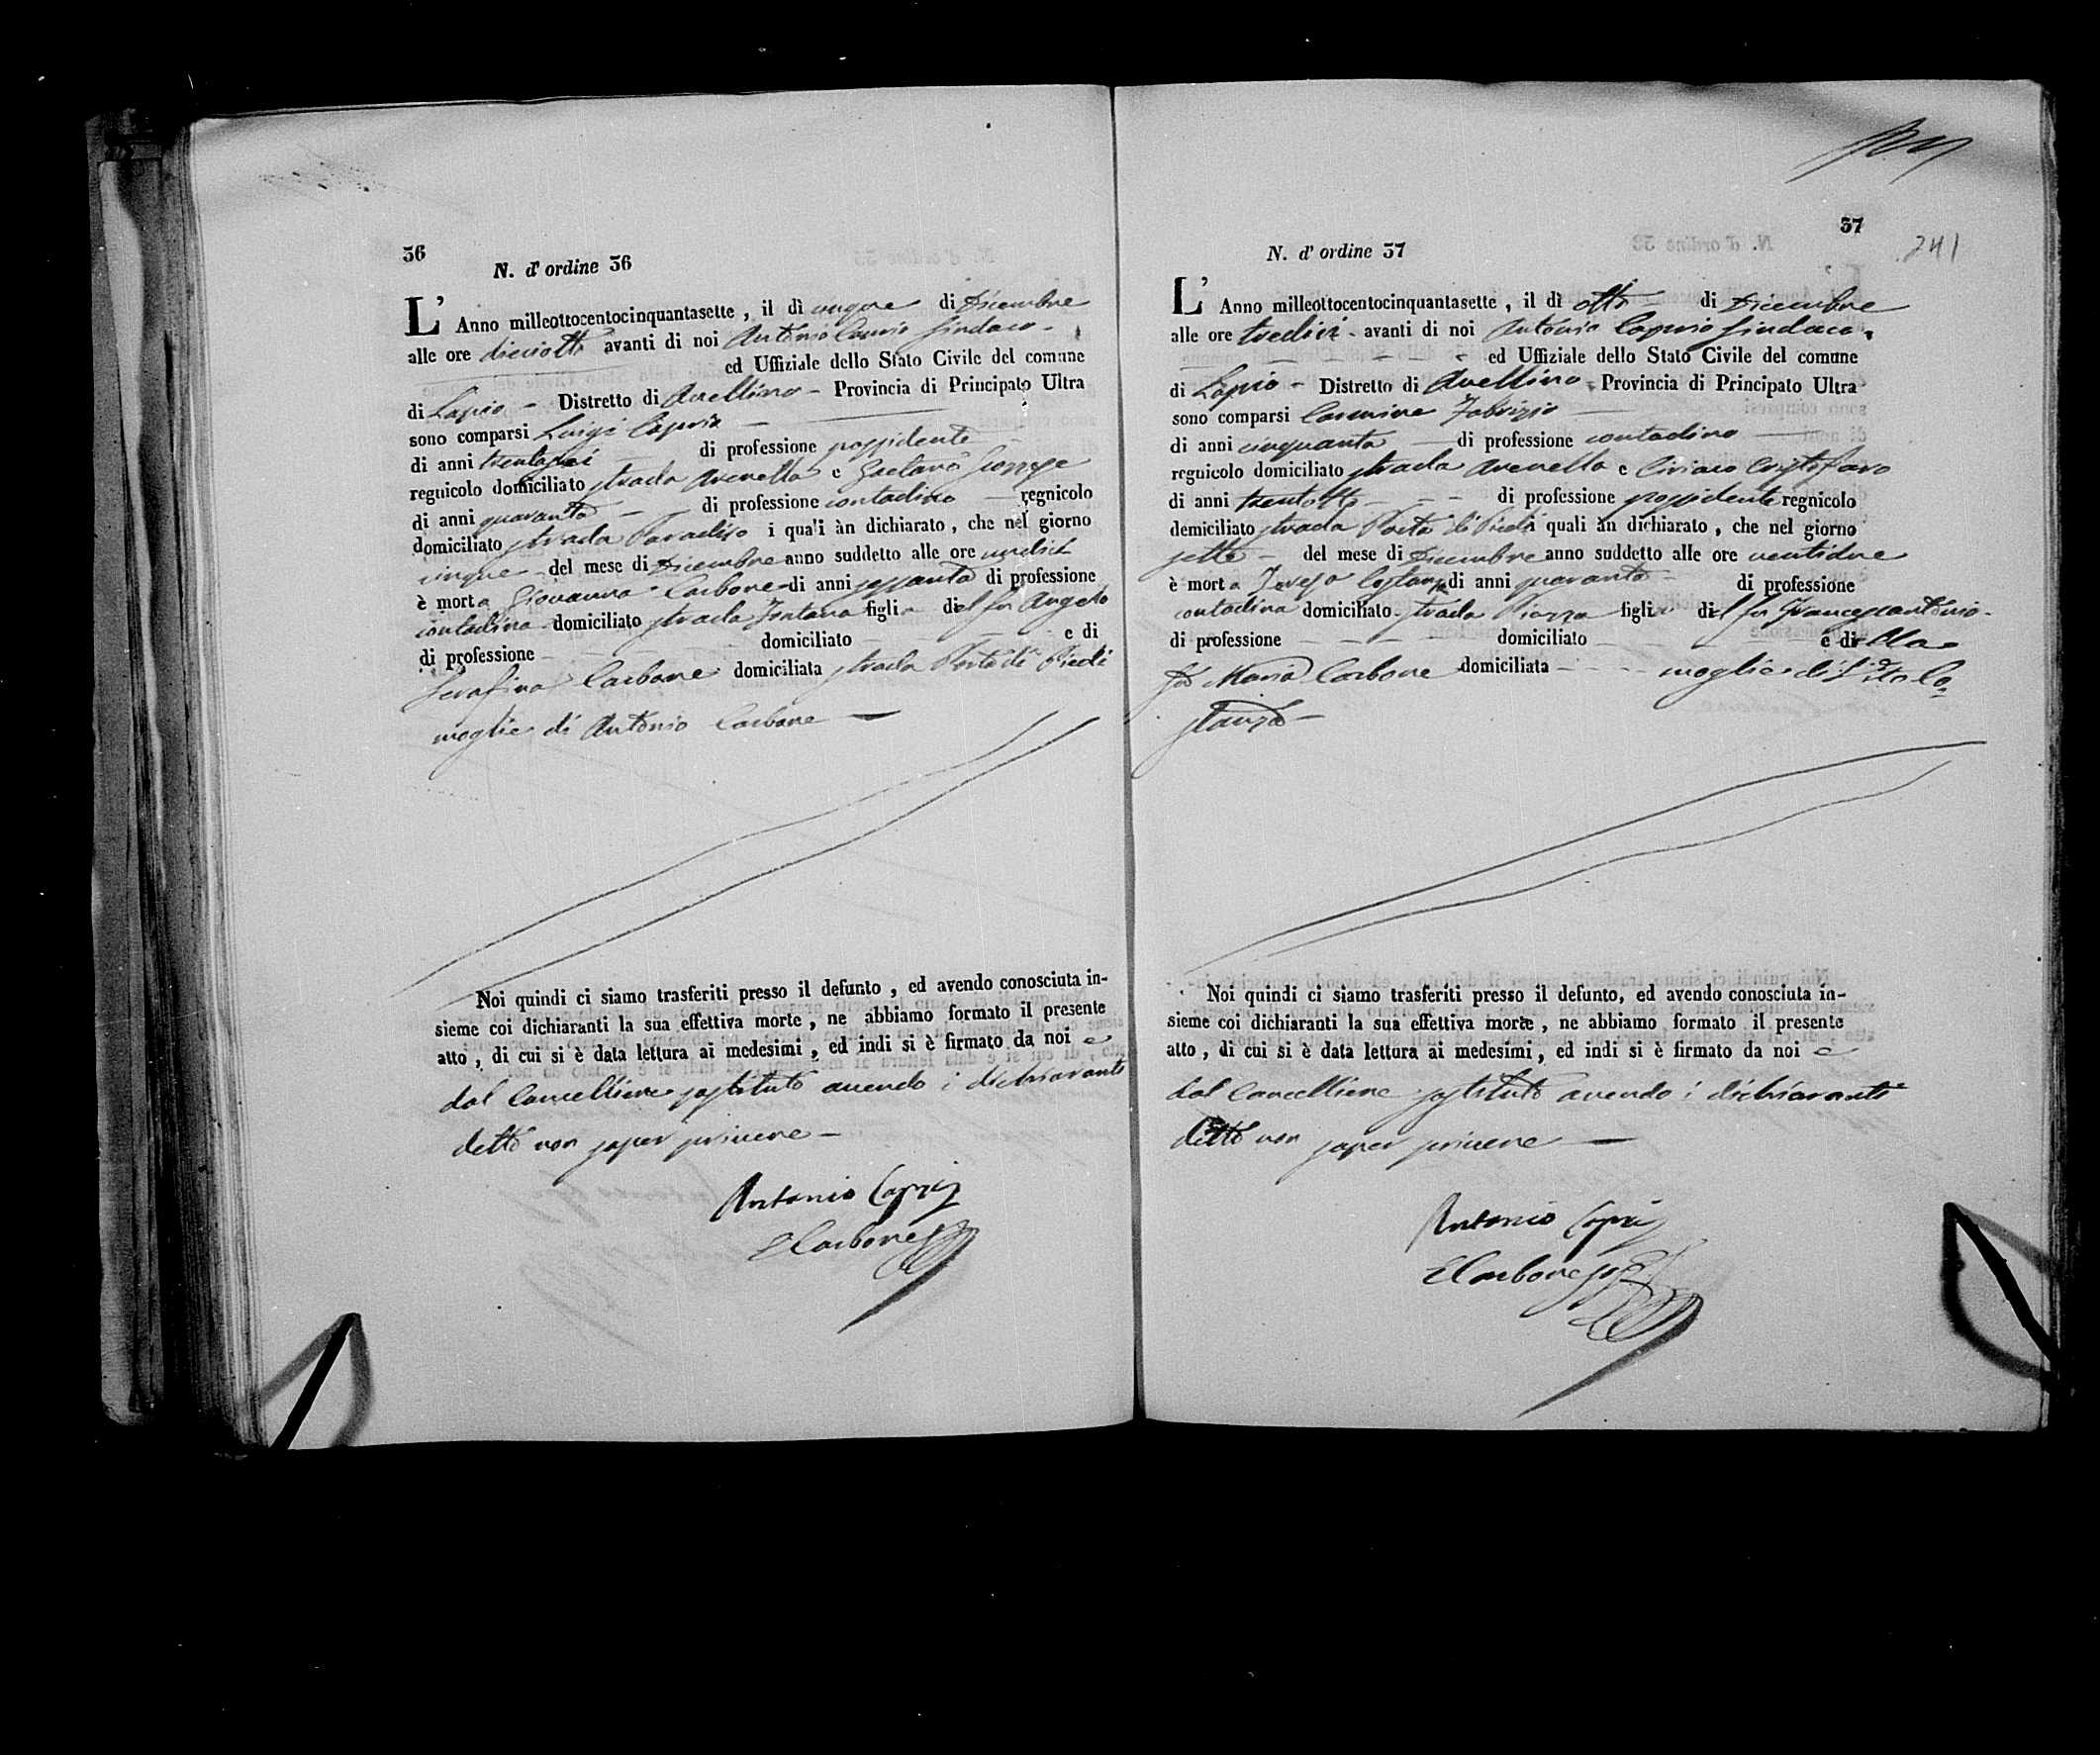 36
N. d' ordine 36
L' Anno milleottocentocinquantasette, il dì cinque di Dicembre
alle ore dieciotto avanti di noi Antonio Caprio Sindaco
ed Uffiziale dello Stato Civile del comune
di Lapio - Distretto di Avellino - Provincia di Principato Ultra
sono comparsi Luigi Caprio
di anni trentasei di professione possidente
regnicolo domiciliato strada Arenella e Gaetano
di anni quaranta di professione contadino regnicolo
domiciliato strada Paradiso i quali àn dichiarato, che nel giorno
cinque del mese di Dicembre anno suddetto alle ore undici
è morta Giovanna Carbone di anni sessanta di professione
contadina domiciliato strada Fontana figlia del fu Angelo
di professione domiciliato e di
Serafina Carbone domiciliata strada Porta di Piedi
moglie di Antonio Carbone
Noi quindi ci siamo trasferiti presso il defunto, ed avendo conosciuta in-
sieme coi dichiaranti la sua effettiva morte, ne abbiamo formato il presente
atto, di cui si è data lettura ai medesimi, ed indi si è firmato da noi e
dal Cancelliere sostituto avendo i dichiaranti
detto non saper scrivere
Antonio Caprio
E Carbone
37
241
N. d' ordine 37
L' Anno milleottocentocinquantasette, il dì otto di Dicembre
alle ore tredici avanti di noi Antonio Caprio Sindaco
ed Uffiziale dello Stato Civile del comune
di Lapio - Distretto di Avellino - Provincia di Principato Ultra
sono comparsi Carmine Fabrizio
di anni cinquanta di professione contadino
regnicolo domiciliato strada Arenella e Ciriaco Cristofaro
di anni trentotto di professione possidente regnicolo
domiciliato strada Porta di Piedi i quali àn dichiarato, che nel giorno
sette del mese di Dicembre anno suddetto alle ore ventidue
è morta Teresa Costanza di anni quaranta di professione
contadina domiciliato strada Piazza figlia del fu Francescantonio
di professione domiciliato e di
Maria Carbone domiciliata moglie di Vito Co-
stanza
Noi quindi ci siamo trasferiti presso il defunto, ed avendo conosciuta in-
sieme coi dichiaranti la sua effettiva morte, ne abbiamo formato il presente
atto, di cui si è data lettura ai medesimi, ed indi si è firmato da noi e
dal Cancelliere sostituto avendo i dichiaranti
detto non saper scrivere
Antonio Caprio
E Carbone